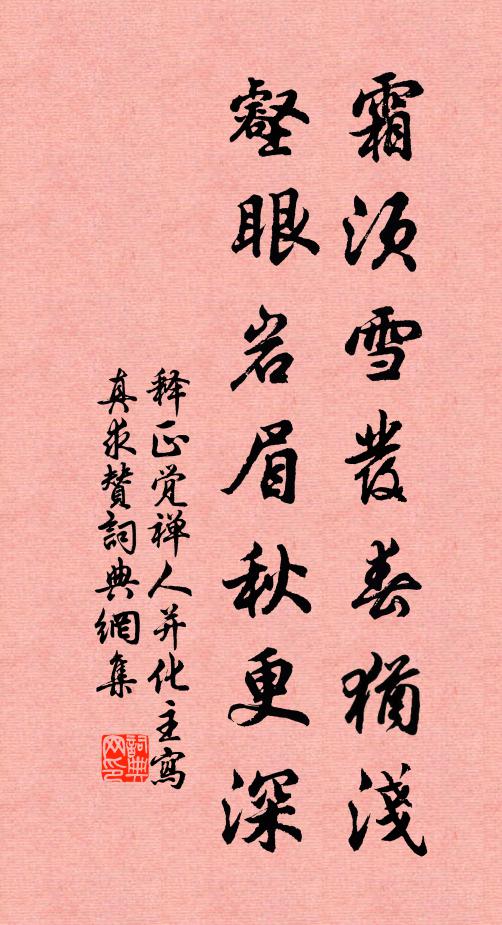 霜须雪发春犹浅
壑眼岩眉秋更深
释正觉禅人并化主写
真求赞詞典網集
詞典
网印